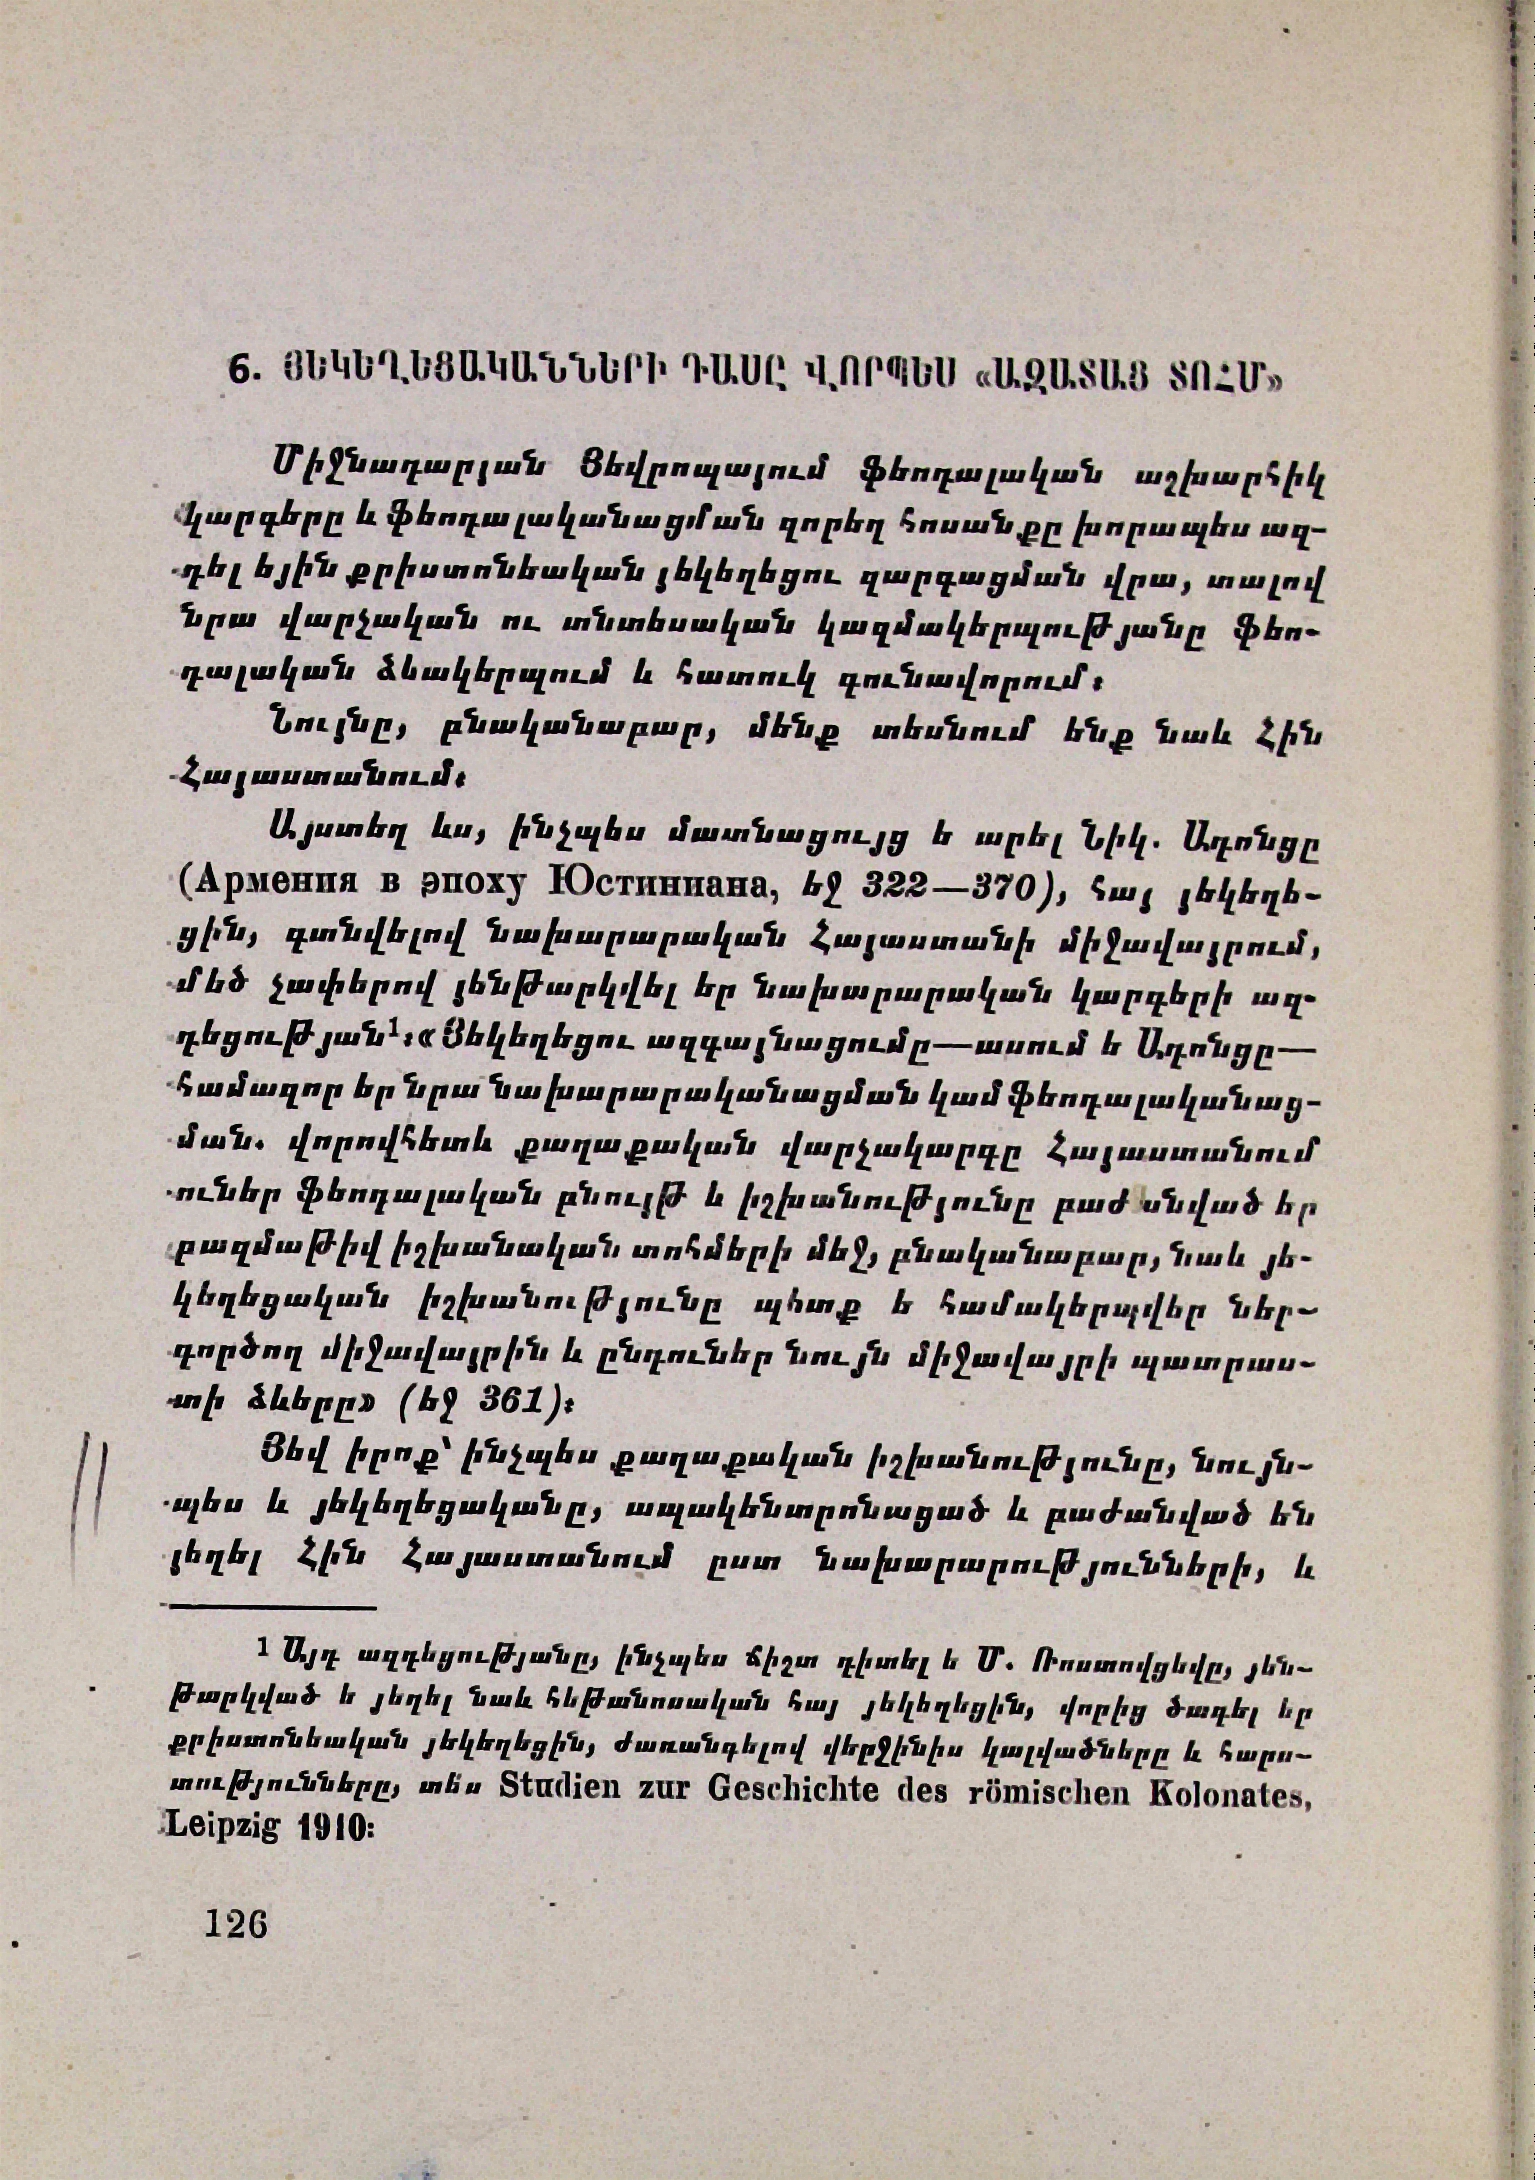 6. ՅԵԿԵՂԵՑԱԿԱՆՆԵՐԻ ԴԱՍԸ ՎՈՐՊԵՍ «ԱԶԱՏԱՑ ՏՈՀՄ»
Միջնադարյան Յեվրոպայում ֆեոդալական աշխարհիկ
կարգերը և ֆեոդալականացման զորեղ հոսանքը խորապես ազ-
դել եյին քրիստոնեական յեկեղեցու զարգացման վրա, տալով
նրա վարչական ու տնտեսական կազմակերպությանը ֆեո-
դալական ձևակերպում և հատուկ գունավորում։
Նույնը, բնականաբար, մենք տեսնում ենք նաև Հին
Հայաստանում։
Այստեղ ևս, ինչպես մատնացույց ե արել Նիկ. Ադոնցը
(Армения в эпоху Юстиниана, եջ 322—370), հայ յեկեղե-
ցին, գտնվելով նախարարական Հայաստանի միջավայրում,
մեծ չափերով յենթարկվել եր նախարարական կարգերի ազ-
դեցության¹։ «Յեկեղեցու ազգայնացումը—ասում ե Ադոնցը—
համազոր եր նրա նախարարականացման կամ ֆեոդալականաց-
ման. վորովհետև քաղաքական վարչակարգը Հայաստանում
ուներ ֆեոդալական բնույթ և իշխանությունը բաժանված եր
բազմաթիվ իշխանական տոհմերի մեջ, բնականաբար, նաև յե-
կեղեցական իշխանությունը պետք ե համակերպվեր ներ-
գործող միջավայրին և ընդուներ նույն միջավայրի պատրաս-
տի ձևերը» (եջ 361)։
Յեվ իրոք՝ ինչպես քաղաքական իշխանությունը, նույն-
պես և յեկեղեցականը, ապակենտրոնացած և բաժանված են
յեղել Հին Հայաստանում ըստ նախարարությունների, և
¹ Այդ ազդեցությանը, ինչպես ճիշտ դիտել ե Մ. Ռոստովցեվը, յեն-
թարկված ե յեղել նաև հեթանոսական հայ յեկեղեցին, վորից ծագել եր
քրիստոնեական յեկեղեցին, ժառանգելով վերջինիս կալվածները և հարս-
տությունները, տե՛ս Studien zur Geschichte des römischen Kolonates,
Leipzig 1910։
126